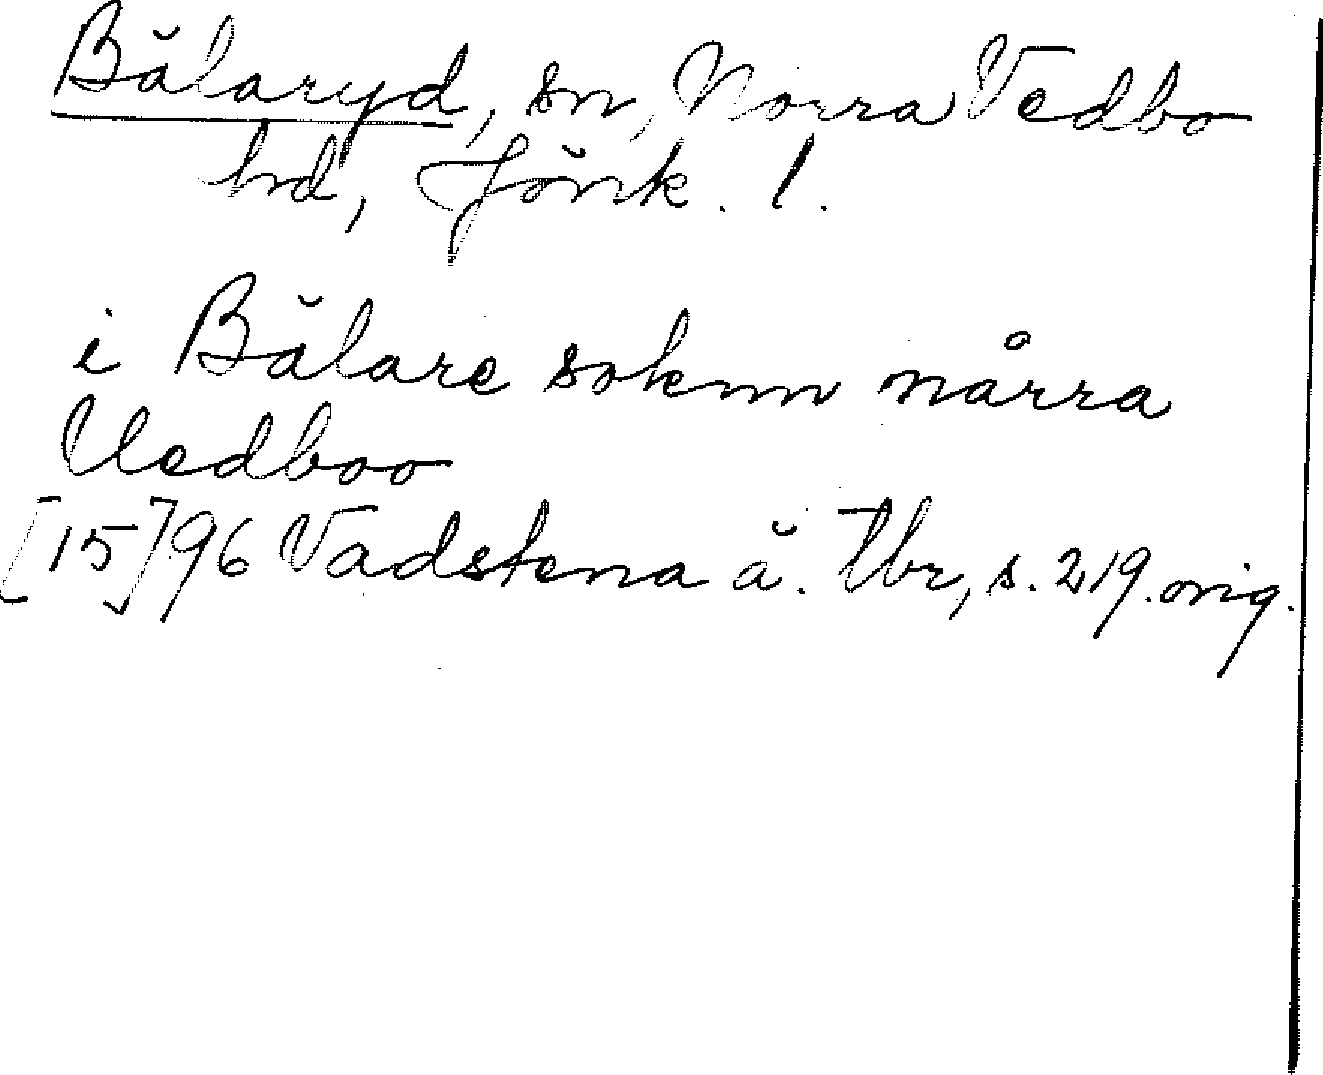 Bälaryd, sn, Norra Vedbo
hd, Jönk. l.
i Bälare soknn nårra
Uedboo
[15]96 Vadstena ä. Tbr, s. 219. orig.